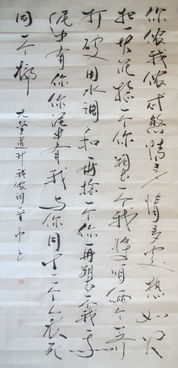 你侬我侬忒煞情多情多處热如火
把一块泥捻一个你塑一个我將咱兩个一齐
打破用水调和再捻一个你再塑一个我我
泥中有你你泥中有我与你生同一个衾死
同一个槨
元管道升我侬词